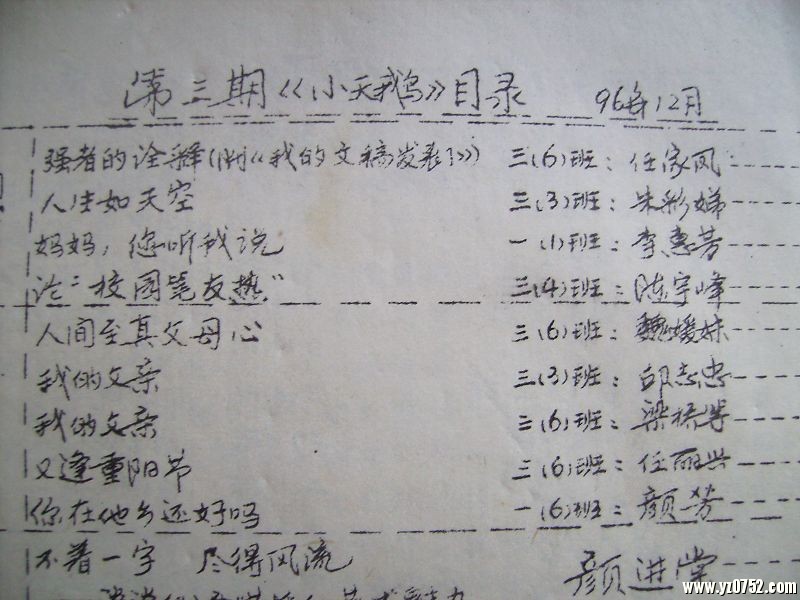 第三期《小天鹅》目录 96年12月
强者的诠释(附《我的文稿发表了》) 三(6)班：任家凤
人生如天空 三(3)班：朱彩娣
妈妈，您听我说 一(1)班：李惠芳
论“校园笔友热” 三(4)班：陈宇峰
人间至真父母心 三(6)班：魏媛妹
我的父亲 三(3)班：邱志忠
我的父亲 三(6)班：梁
又逢重阳节 三(6)班：任丽兴
你在他乡还好吗 一(6)班：颜芳
不着一字 尽得风流 颜进堂
www.yz0752.com